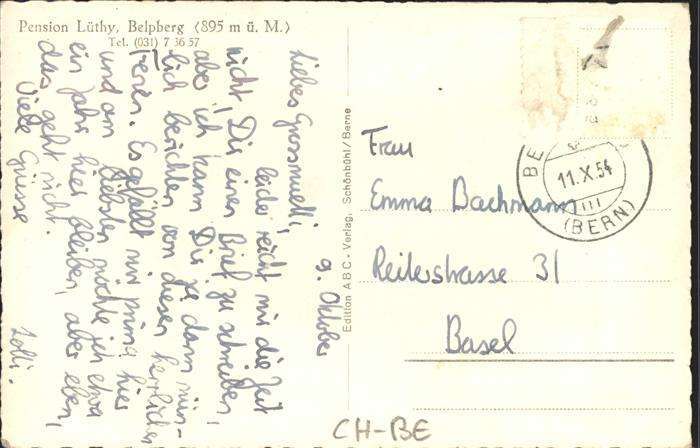 Pension Lüthy, Belpberg (895 m ü. M.)
Tel. (031) 7 36 57
9. Oktober
Liebes Grossmuetti,
leider reicht mir die Zeit
nicht, Dir einen Brief zu schreiben,
aber ich kann Dir ja dann mün-
lich berichten von diesen herrlichen
Ferien. Es gefällt mir prima hier
und am liebsten möchte ich etwa
ein Jahr hier bleiben, aber eben,
das geht nicht.
Viele Grüsse
Lolli.
Edition ABC - Verlag, Schönbühl/Berne
11.X.54
(BERN)
Frau
Emma Bachmann
Reiterstrasse 31
Basel
CH-BE